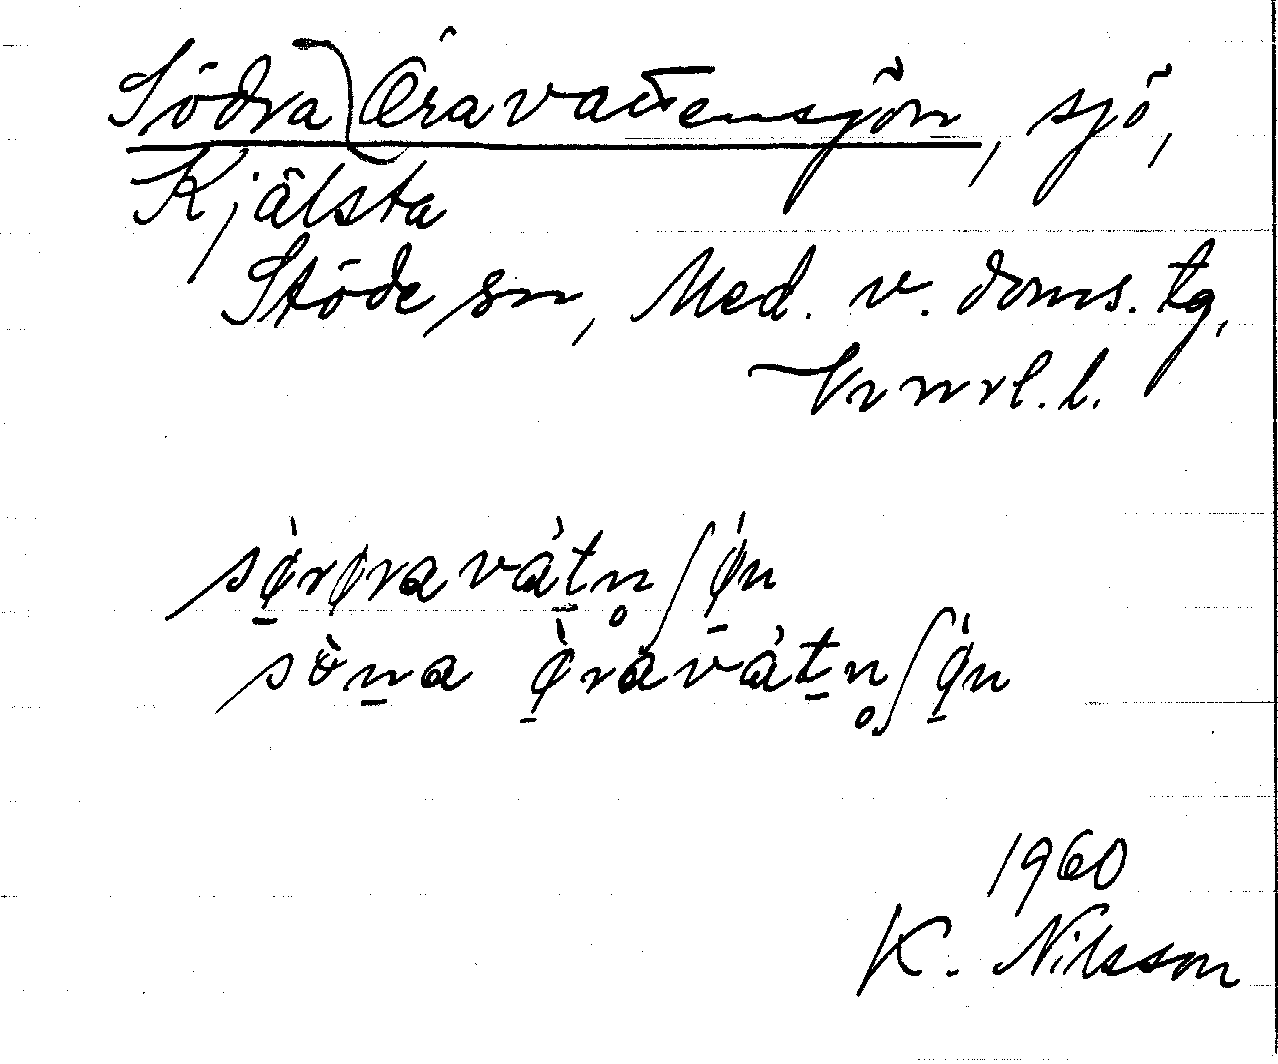 Södra) Öravattensjön, sjö,
Kjälsta
Stöde sn, Med. v. doms. tg,
Vrnrl. l.
sø̠̀røravàt̠n̥ʃǿ̠n
sö̀n̠a ø̠̀ravát̠n̥ʃǿ̠n
1960
K. Nilsson